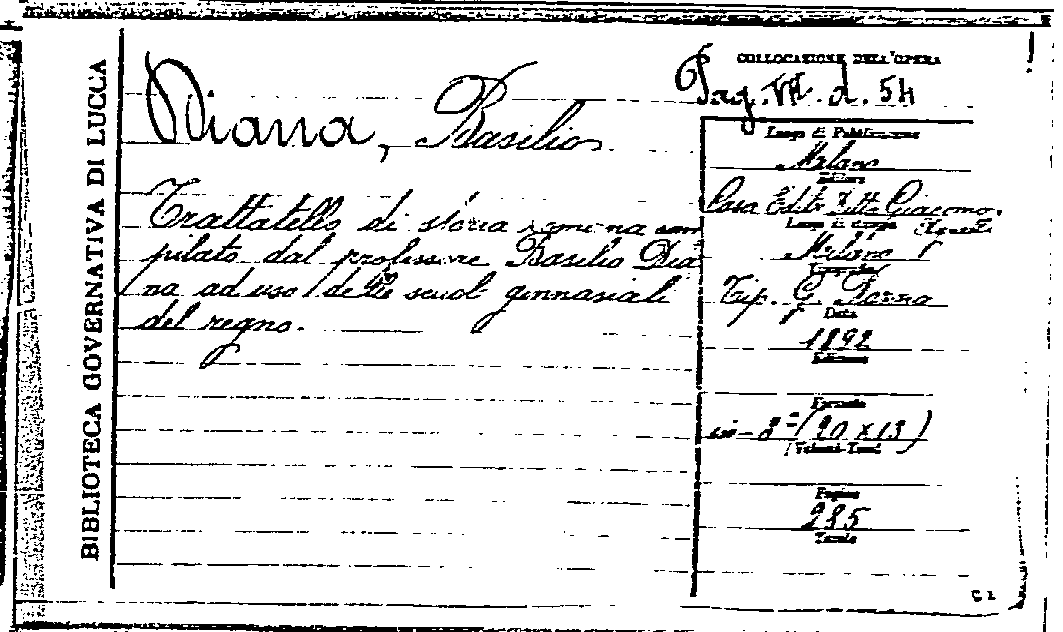 BIBLIOTECA GOVERNATIVA DI LUCCA
Diana, Basilio
Trattatello di storia romana com
pilato dal professore Basilio Dia
na ad uso delle scuole ginnasiali
del regno.
COLLOCAZIONE DELL'OPERA
Pag. VII. d. 54
Luogo di Pubblicazione
Milano
Editore
Casa Edit. Ditta Giacomo
Luogo di stampa
Milano
Tip. G.
Data
1892
Edizione
Formato
in-8° (20 x 13)
Volumi-Tomi
Pagine
285
Tavole
C 1